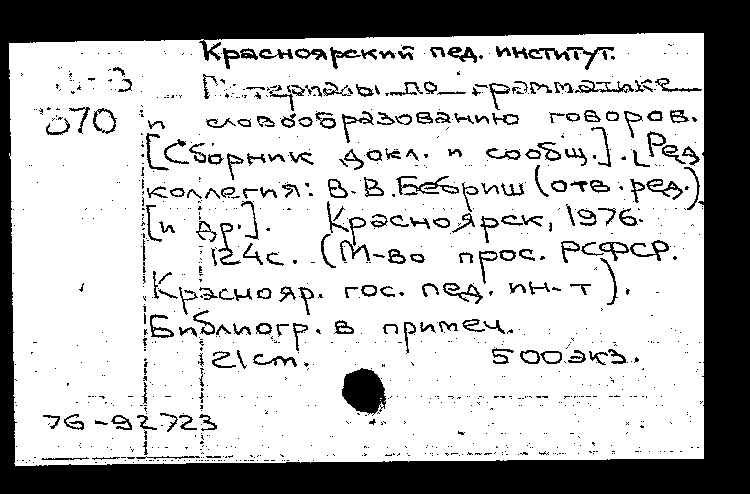 Красноярский пед. институт.
Материалы по грамматике
870 и словообразованию говоров.
[Сборник докл. и сообщ.]. [Ред.
коллегия: В. В. Бебриш (отв. ред.)
[и др.]. Красноярск, 1976.
124с. (М-во прос. РСФСР.
Краснояр. гос. пед. ин-т).
Библиогр. в примеч.
21 см. 500 экз.
76-92723